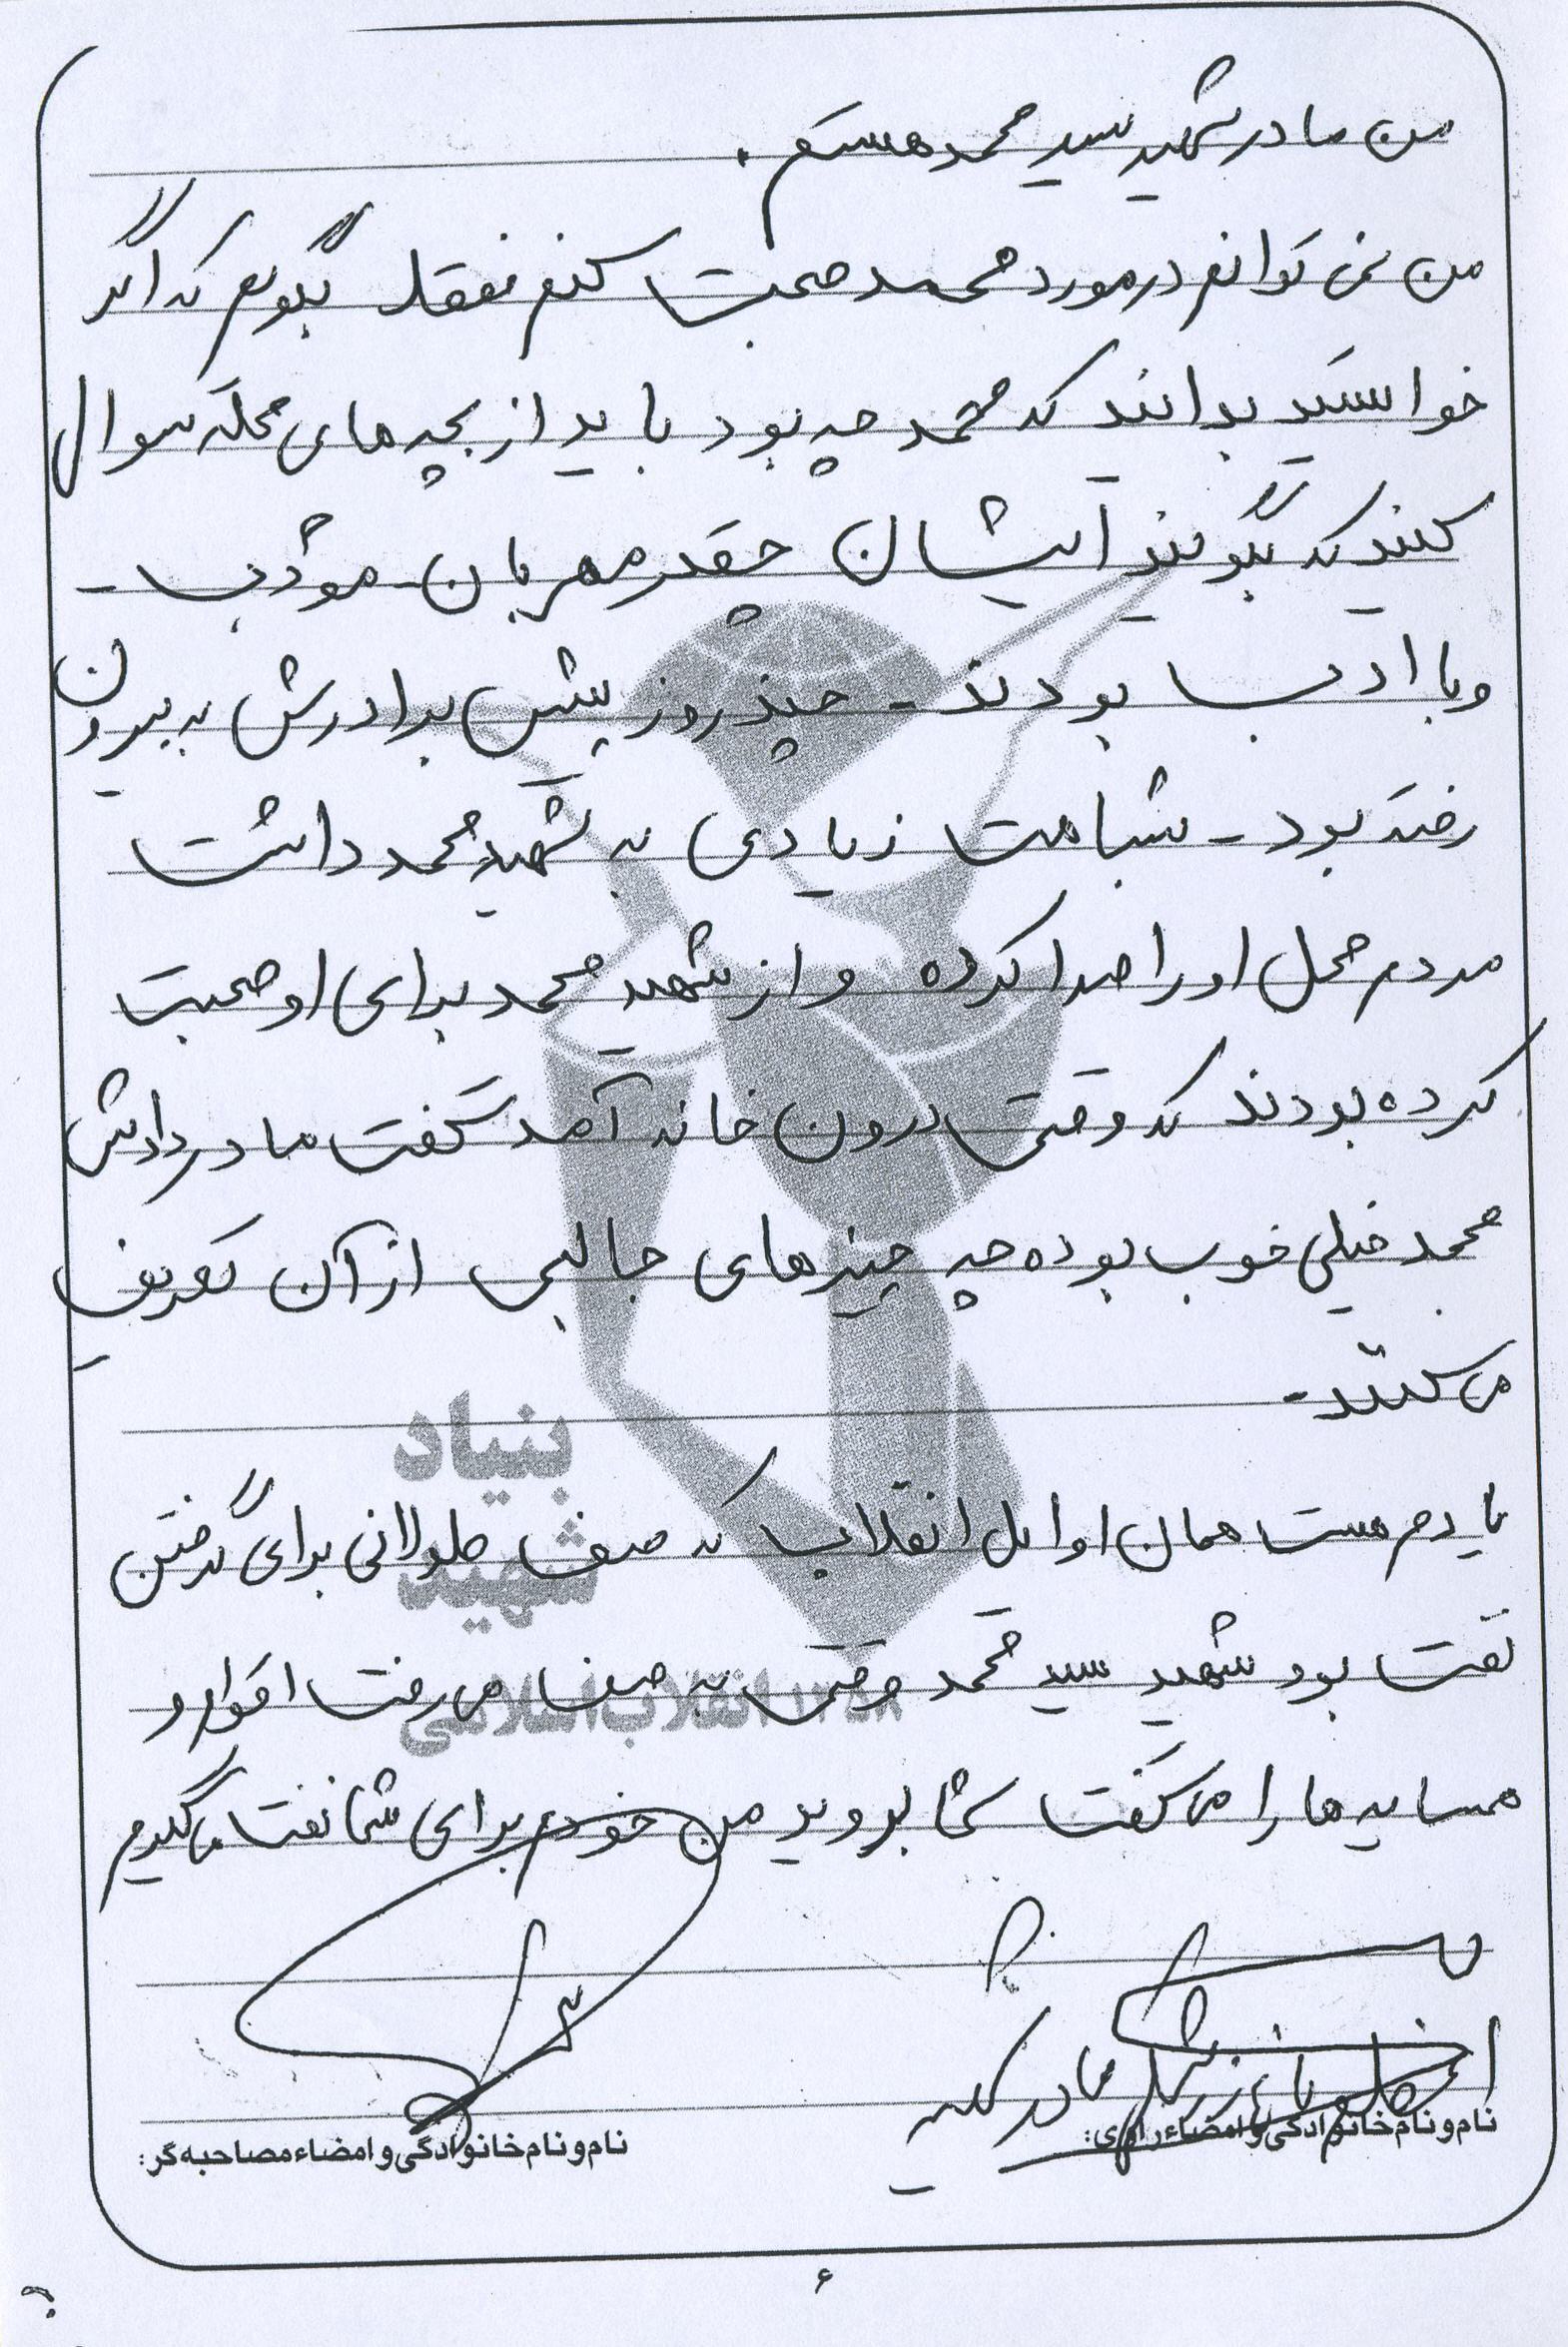 من مادر شهید سید محمد هستم.
من نمی توانم در مورد محمد صحبت کنم فقط بگویم که اگر
خواستید بدانید که محمد چه بود باید از بچه های محله سوال
کنید که بگویند ایشان چقدر مهربان - مودب -
و با ادب بودند - چند روز پیش برادرش به بیرون
رفته بود - شباهت زیادی به شهید محمد داشت
مردم محل او را صدا کرده و از شهید محمد برای او صحبت
کرده بودند که وقتی درون خانه آمد گفت مادر داداش
محمد خیلی خوب بوده چه چیزهای جالبی از آن تعریف
می کنند -
یادم هست همان اوایل انقلاب که صف طولانی برای گرفتن
نفت بود شهید سید محمد وقتی به صف می رفت افراد و
همسایه ها را می گفت شما بروید من خودم برای شما نفت می گیرم
مادر
نام و نام خانوادگی و امضاء راوی:
نام و نام خانوادگی و امضاء مصاحبه گر:
بنیاد
شهید
انقلاب اسلامی ۱۳۵۸
۶